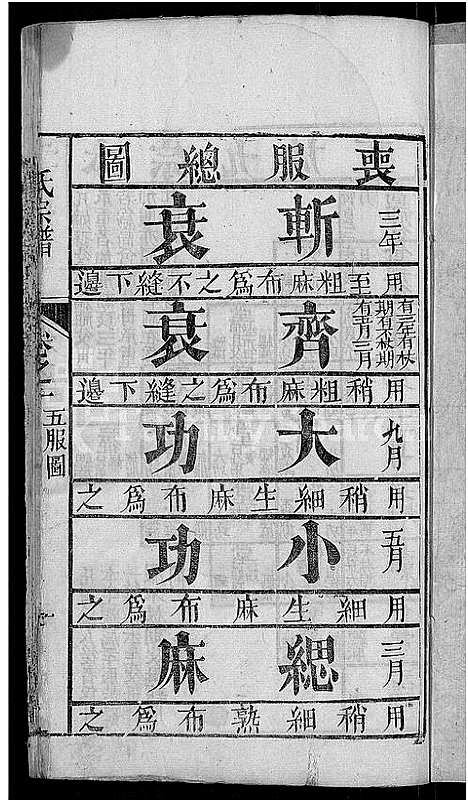 喪服總圖
三年
斬衰
用至粗麻布爲之不縫下邊
有三年有杖
期有不杖期
有五月三月
齊衰
用稍粗麻布爲之縫下邊
九月
大功
用稍細生麻布爲之
五月
小功
用細生麻布爲之
三月
緦麻
用稍細熟布爲之
氏宗譜
五服圖